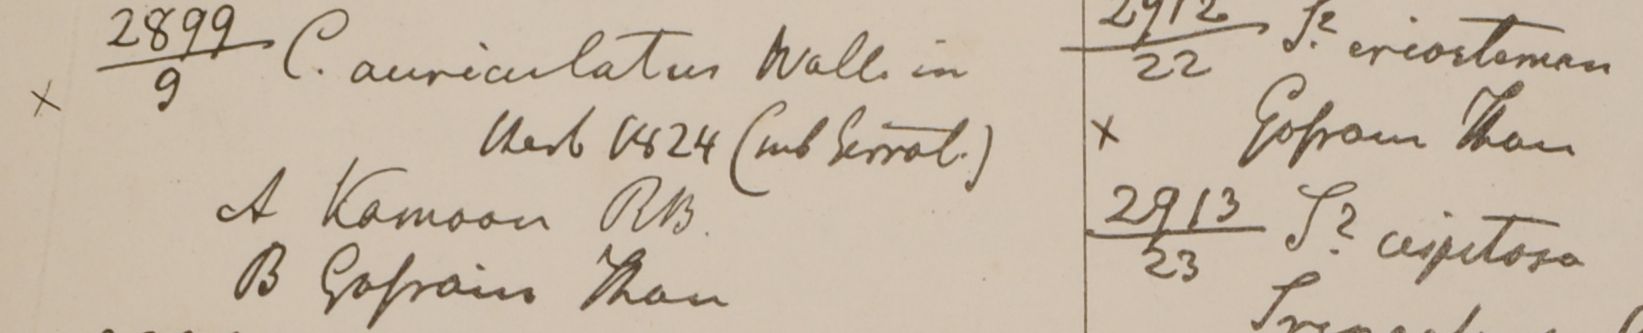 2899
9
C. auriculatus Wall. in
Herb 1824 (sub Serrat.)
A Kamoon RB.
B Gosain Than
×
2912
22
S? eriostemon
× Gosain Than
2913
23
S? cespitosa